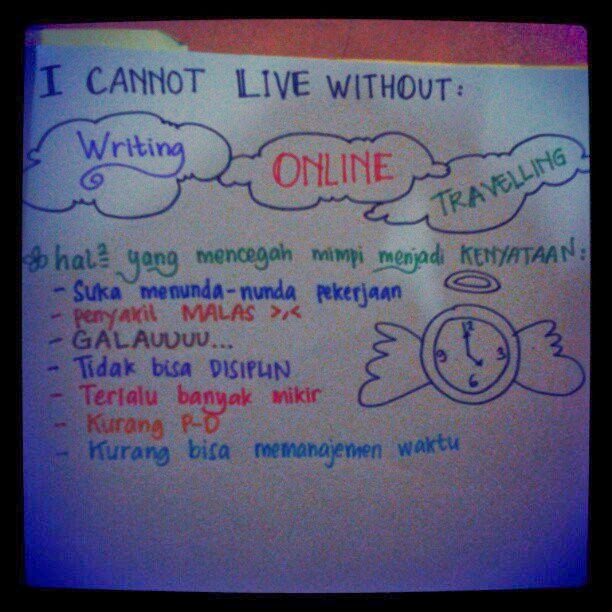 I CANNOT LIVE WITHOUT:
Writing
ONLINE
TRAVELLING
hal² yang mencegah mimpi menjadi KENYATAAN:
- Suka menunda-nunda pekerjaan
- penyakit MALAS >,<
- GALAUUUU...
- Tidak bisa DISIPLIN
- Terlalu banyak mikir
- Kurang P-D
- Kurang bisa memanajemen waktu
12
9 3
6